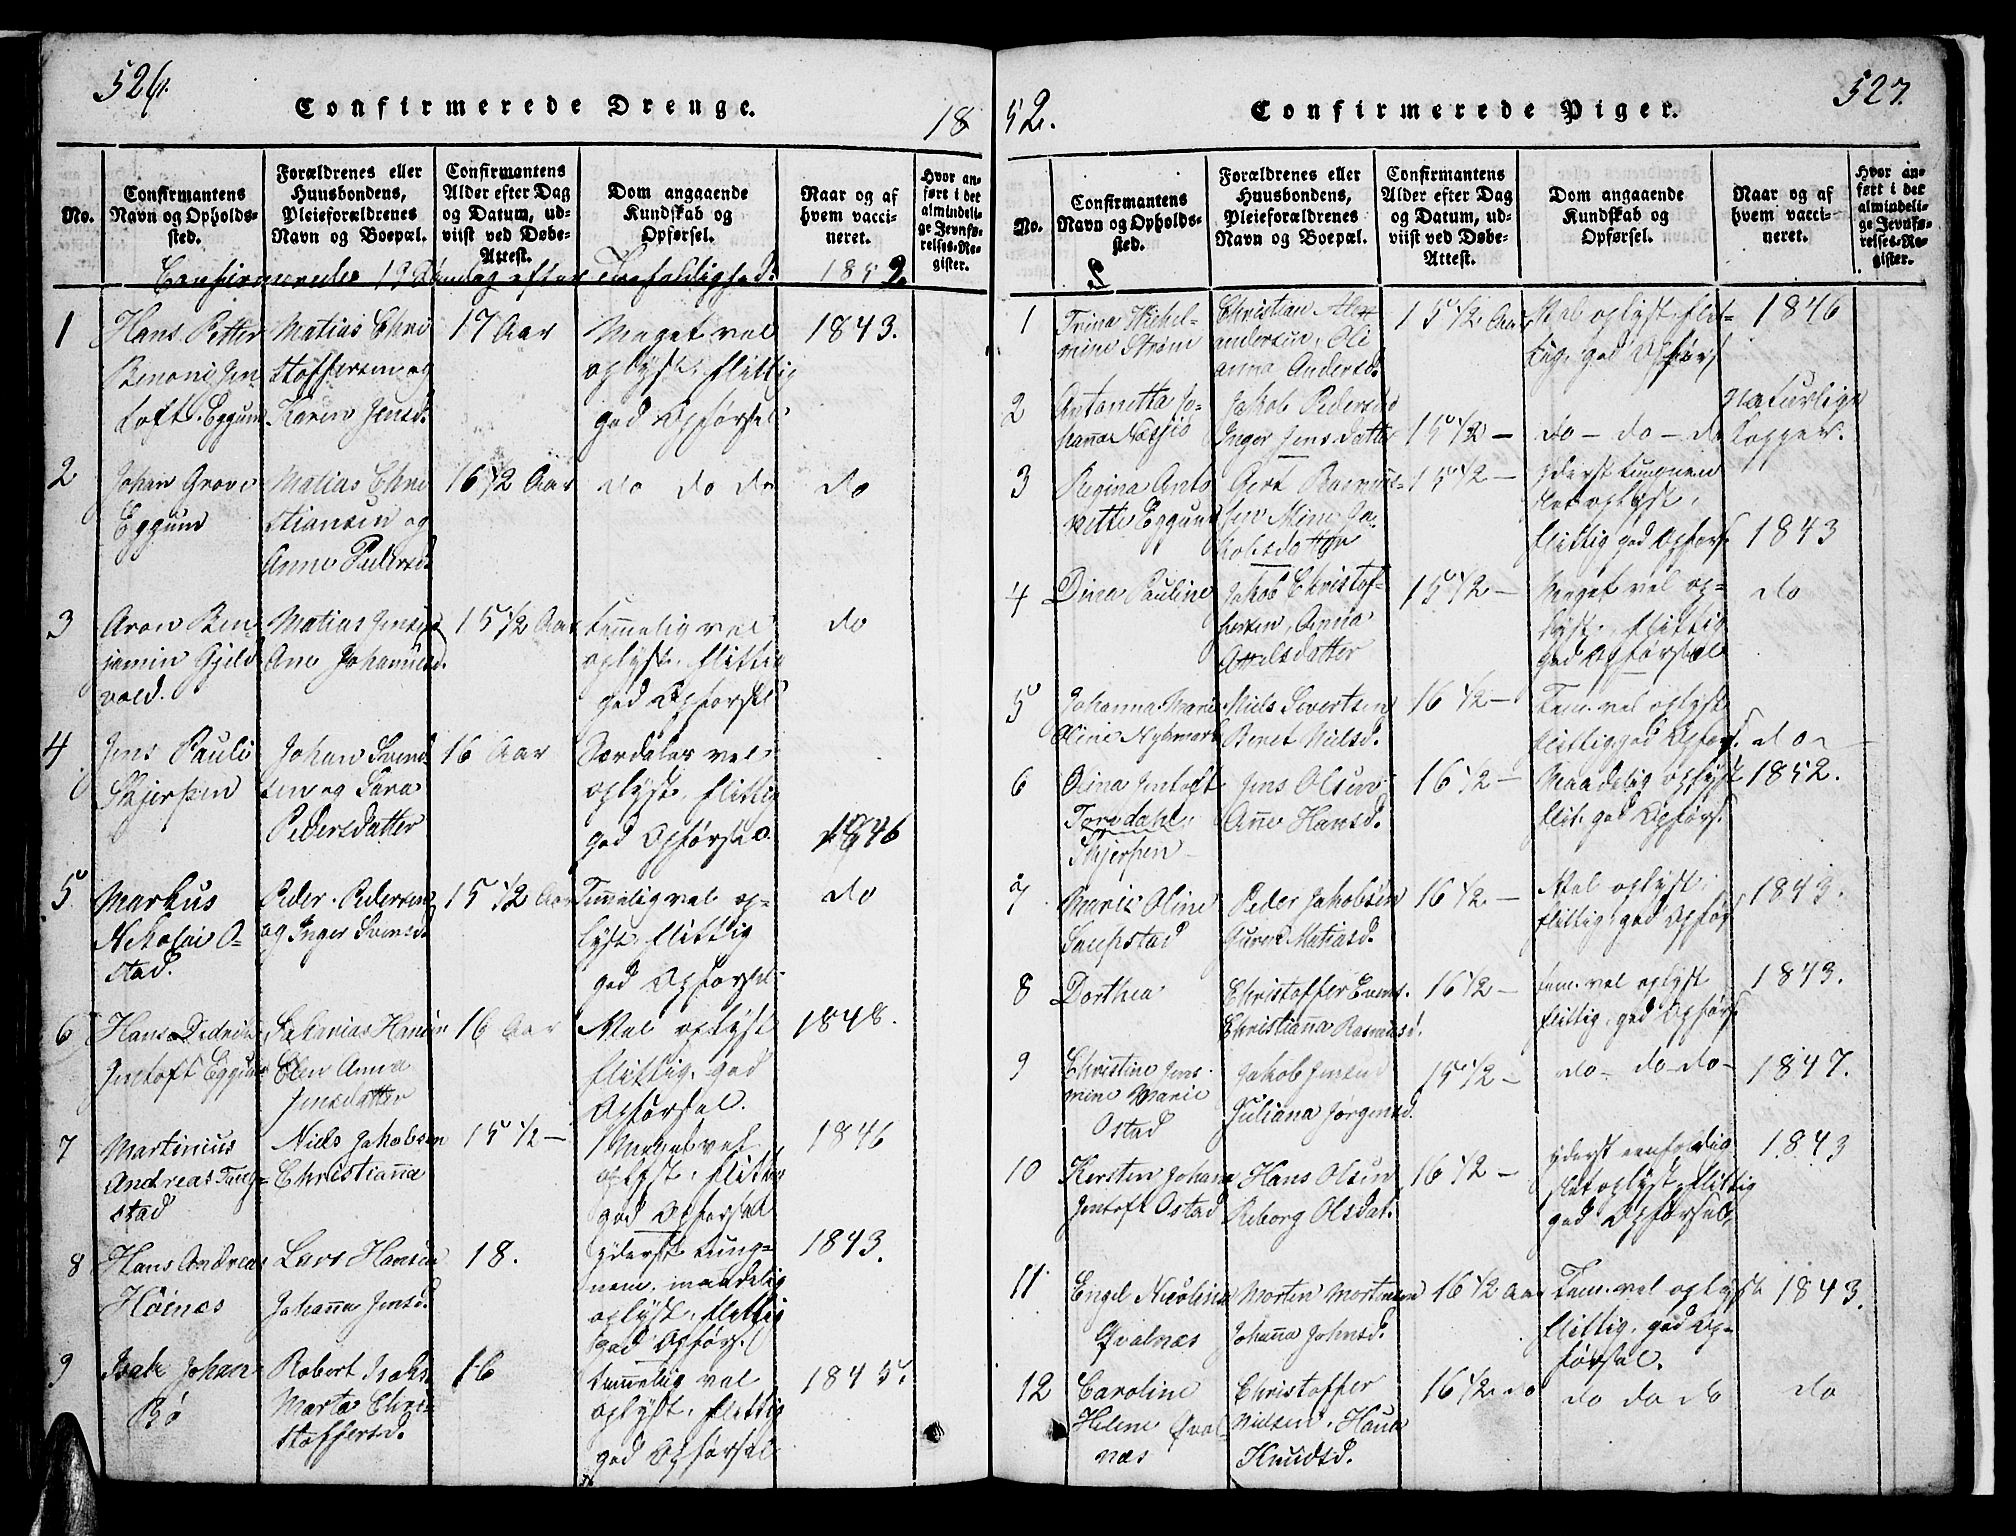 526.
Confirmerede Drenge.
18
No.
Confirmantens
Navn og Opholds-
sted.
Forældrenes eller
Huusbondens,
Pleieforældrenes
Navn og Boepæl.
Confirmantens
Alder efter Dag
og Datum, ud-
viist ved Døbe-
Attest.
Dom angaaende
Kundskab og
Opførsel.
Naar og af
hvem vacci-
neret.
Hvor an-
ført i det
almindeli-
ge Jevnfø-
relses-Re-
gister.
Confirmerede 19 Søndag efter Trefoldighed. 1852
1
Hans Petter
Benoni Jen
toft. Eggum
Matias Chri
stoffersen og
Karen Jensd.
17 Aar
Meget vel
oplyst, flittig
god Opførsel
1843.
2
Johan Grove
Eggum
Matias Chri
stiansen og
Anne Pedersd
16 1/2 Aar
do do do
do
3
Aron Ben
jamin Gjeld
vold.
Matias Jensen
Ane Johannesd.
15 1/2 Aar
temmelig vel
oplyst, flittig
god Opførsel
do
4
Jens Pauli
Skjerpen
Johan Svend
sen og Sara
Pedersdatter
16 Aar
Særdeles vel
oplyst, flittig
god Opførsel
1846
5
Markus
Nikolai O-
stad.
Peder Pedersen
og Inger Svensd.
15 1/2 Aar
Temmelig vel op-
lyst, flittig
god Opførsel
do
6
Hans Didrik
Jentoft Eggum
Sakarias Hansen
Elen Anna
Jensdatter
16 Aar
Vel oplyst
flittig, god
Opførsel.
1848.
7
Martinius
Andreas Tang-
stad
Niels Jakobsen
Christianna
15 1/2 —
Meget vel
oplyst, flittig
god Opførsel
1846
8
Hans Andreas
Höinæs
Lars Hansen
Johanna Jensd.
18.
yderst tung-
nem. maadelig
oplyst, flittig
god Opførs.
1843.
9
Isak Johan
Bö
Robert Isaks.
Marta Chri-
stoffersd.
16
temmelig vel
oplyst, flittig
god Opførsel
1845.
52.
Confirmerede Piger.
527.
No.
Confirmantens
Navn og Opholds-
sted.
Forældrenes eller
Huusbondens,
Pleieforældrenes
Navn og Boepæl.
Confirmantens
Alder efter Dag
og Datum, ud-
viist ved Døbe-
Attest.
Dom angaaende
Kundskab og
Opførsel.
Naar og af
hvem vacci-
neret.
Hvor an-
ført i det
almindeli-
ge Jevnfø-
relses-Re-
gister.
1
Trina Wihel-
mine Strøm
Christian Alex
andersen, Oli
anna Andersd.
15 1/2 Aar
Vel oplyst, flit-
tig, god Opførs
1846
2
Antonetta Jo-
hanna Næsjø
Jakob Pedersen
Inger Jensdatter
15 1/2 —
do — do — do
naturlige
Kopper.
3
Regina Anto
nette Eggum
Gert Rasmus-
sen Mine Ja-
kobsdatter
15 1/2 —
yderst tungnem
slet oplyst,
flittig god Opførs.
1843
4
Dina Pauline
Jakob Christof-
fersen, Anna
Attelsdatter
15 1/2 —
Meget vel op-
lyst, flittig
god Opførsel
do
5
Johanna Marie
Oline Nykmark
Niels Sivertsen
Beret Nilsd.
16 1/2 —
Tem. vel oplyst
flittig, god Opførs.
do
6
Olina Jentoft
Toredahl,
Skjerpen
Jens Olsen
Anne Hansd.
16 1/2 —
Maadelig oplyst
flit. god Opførs.
1852.
7
Maris Oline
Saupstad
Peder Jakobsen
Guren Matiasd.
16 1/2 —
Vel oplyst,
flittig, god Opførs
1843.
8
Dorthea
Christoffer Evens.
Christianna Rasmusd.
16 1/2 —
tem. vel oplyst
flittig, god Opførs
1843.
9
Christine Jens-
mine Marie
Ostad
Jakob Jensen
Juliana Jørgensd.
15 1/2 —
do — do — do —
1847.
10
Kersten Johanna
Jentoft Ostad
Hans Olsen
Reborg Olsdat.
16 1/2 —
yderst eenfoldig
slet oplyst, flittig
god Opførsel,
1843
11
Engel Nicolina
Qvalnæs
Morten Mortensen
Johanna Johnsd.
16 1/2 Aar
Tem. vel oplyst
flittig, god Op-
førsel.
1843.
12
Caroline
Helene Qval
næs
Christoffer
Nielsen, Hana
Knudsd.
16 1/2 do
do do do
do